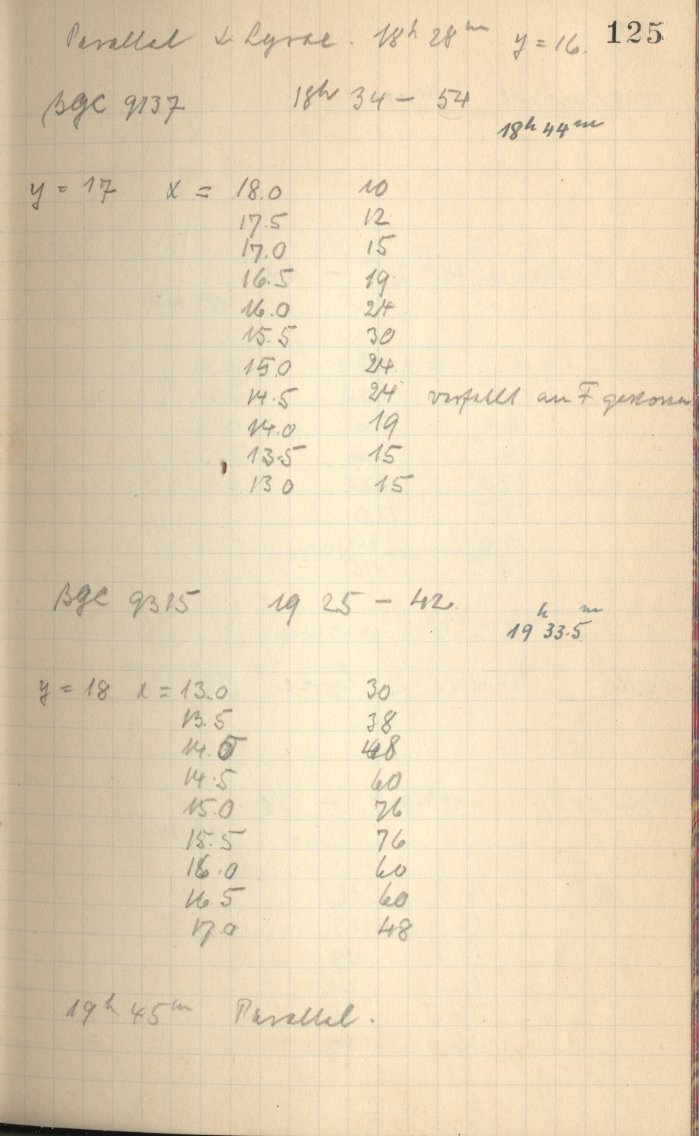 Parallel α Lyrae. 18h 28m y = 16. 125
BGC 9137 18h 34 – 54
18h 44m
y = 17 x = 18.0 10
17.5 12
17.0 15
16.5 19
16.0 24
15.5 30
15.0 24
14.5 24 an F
14.0 19
13.5 15
13.0 15
BGC 9315 19 25 – 42
19h 33.5m
y = 18 x = 13.0 30
13.5 38
14.0 48
14.5 60
15.0 76
15.5 76
16.0 60
16.5 60
17.0 48
19h 45m Parallel.